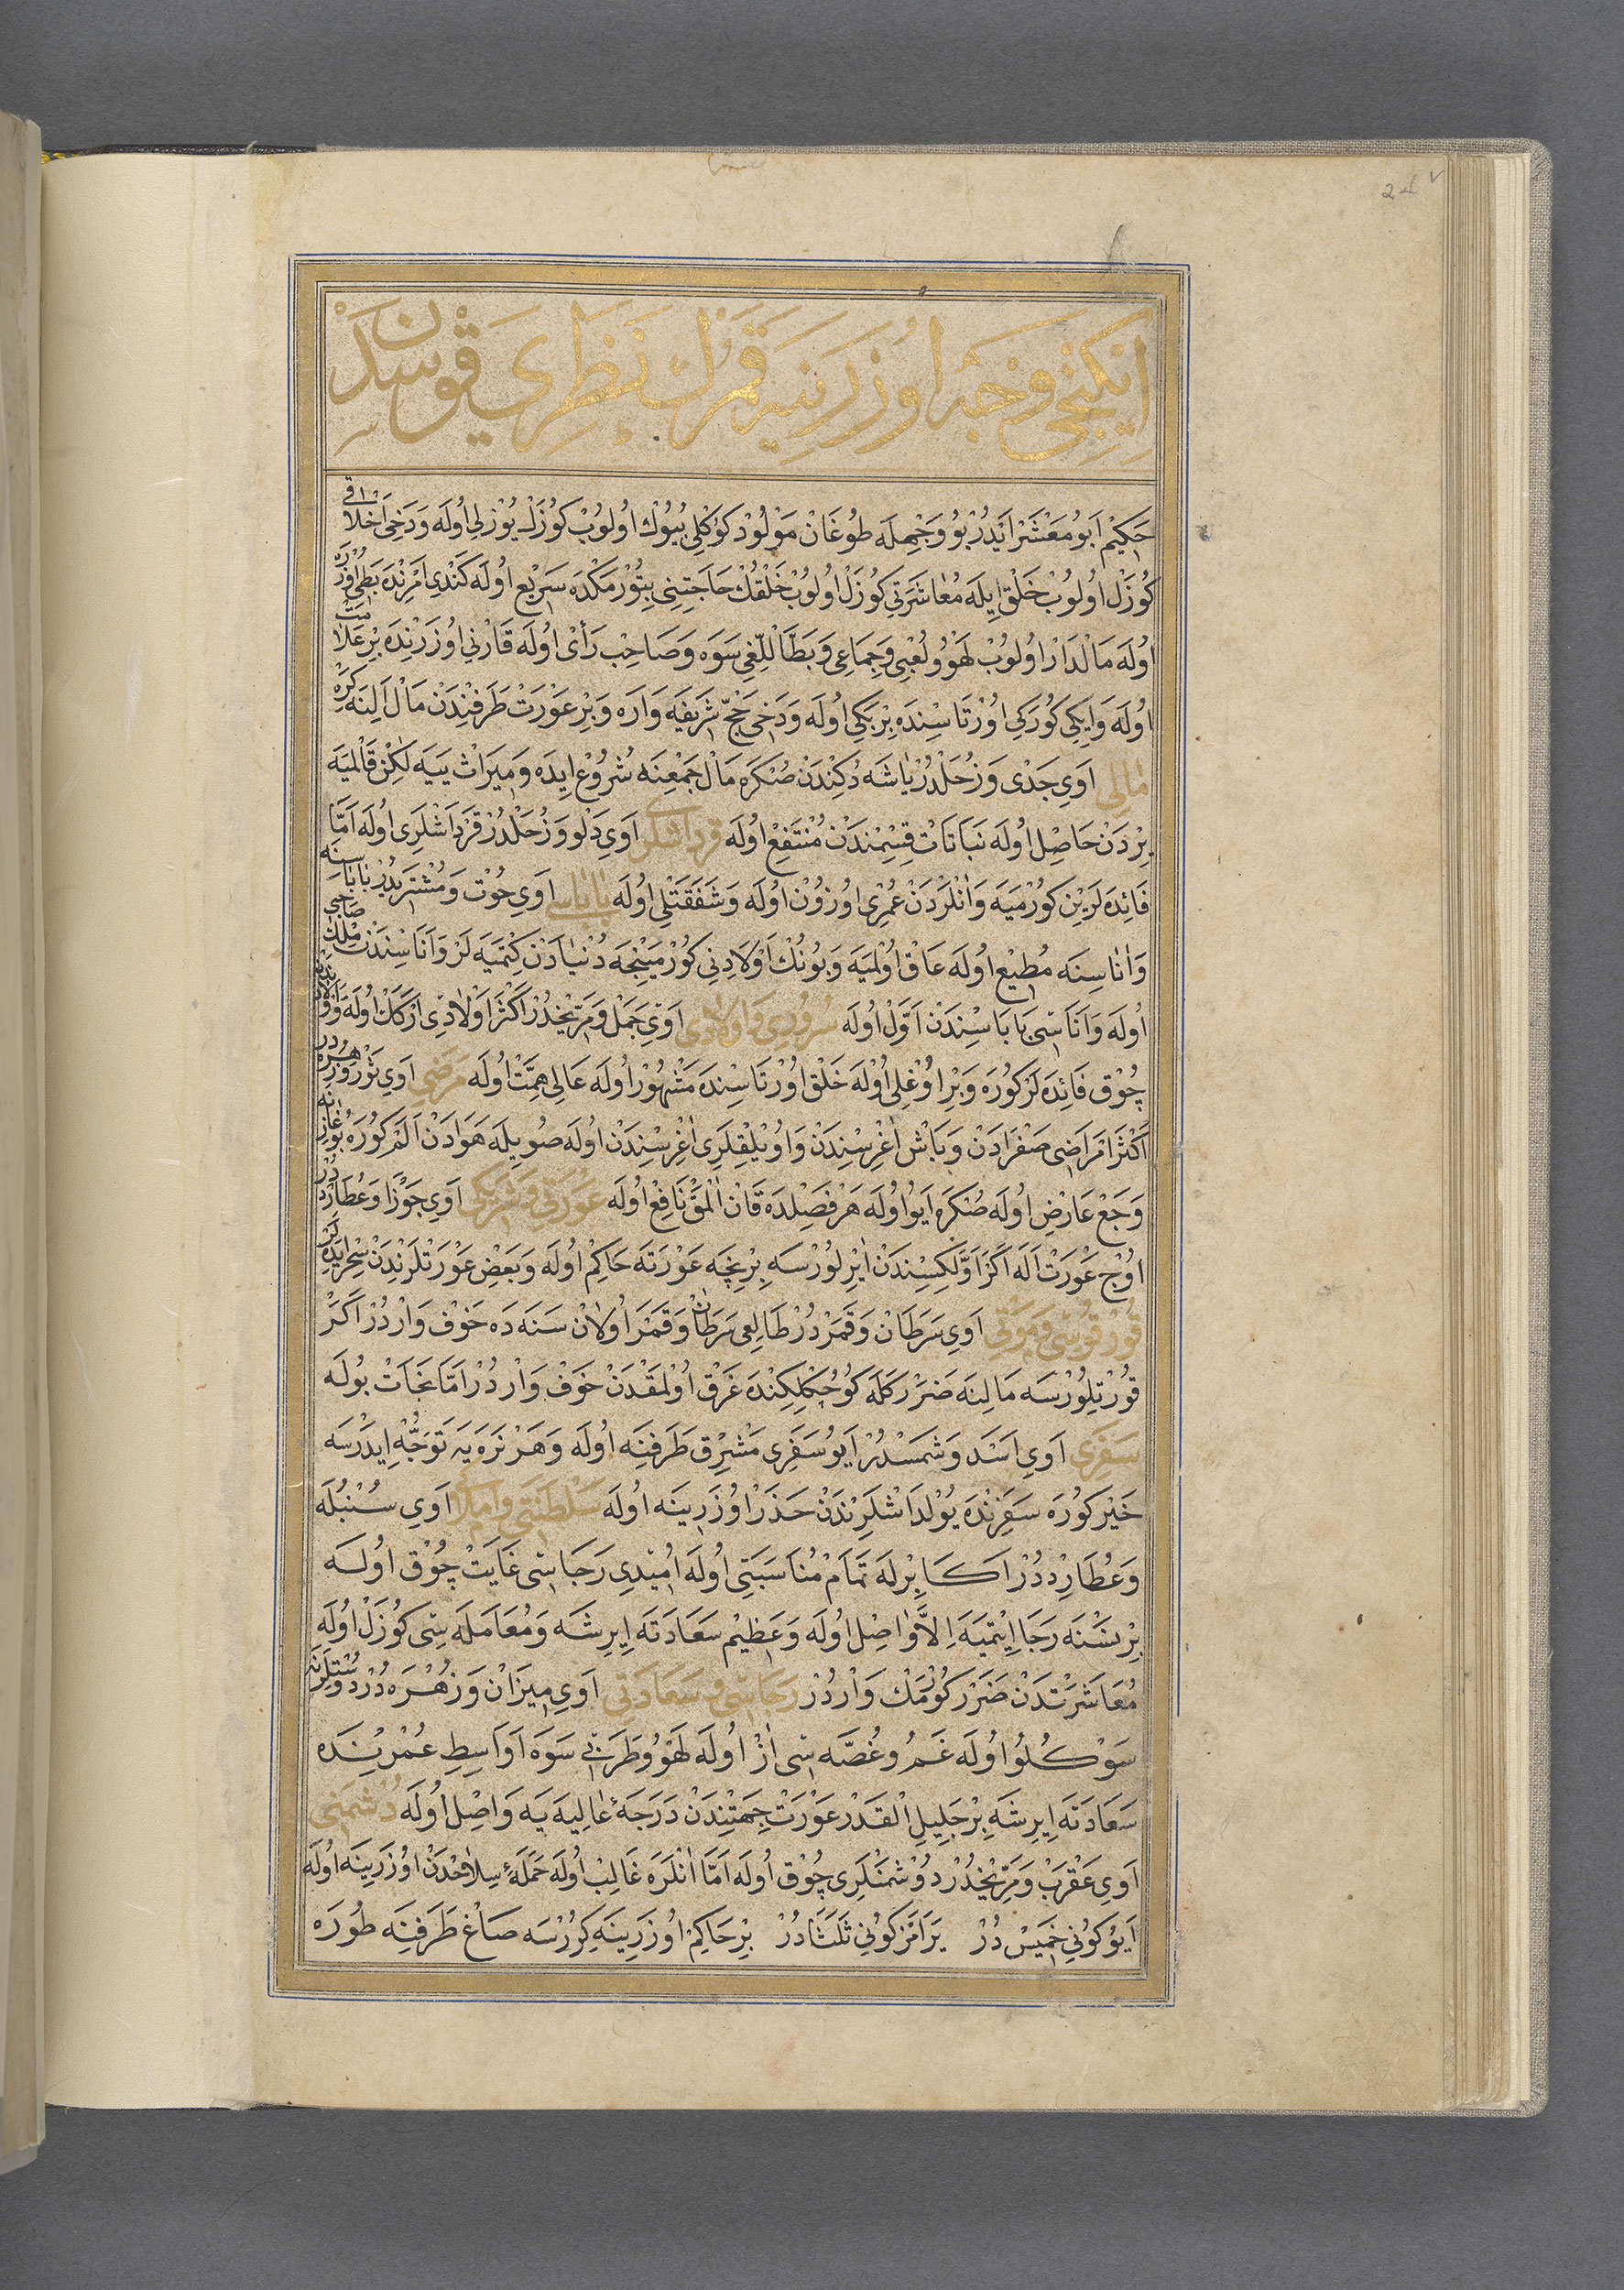 ايكنجى وجه اوزرينه قمرك نظرى قوسدن
حَكِيمْ اَبُو مَعْشَرْ اَيْدُرْ بُو وَجْهِلَه طُوغَانْ مَوْلُودْ كَوْكَلِى بُيُوكْ اُولُوبْ كُوزَلْ يُوزْلِى اُولَه وَدَخِى اَخْلَاقِى
كُوزَلْ اُولُوبْ خَلْقْ اِيلَه مُعَاشَرَتِى كُوزَلْ اُولُوبْ خَلْقُكْ حَاجَتِنِى بِتُورْمَكْدَه سَرِيعْ اُولَه كَنْدِى اَمْرِنْدَه بَطِى اُوزَرَه
اُولَه مَالْدَارْ اُولُوبْ لَهْوُ ولُعْبِى وَجِمَاعِى وَبَطَّالْلِغِى سَوَه وَصَاحِبْ رَأْىْ اُولَه قَارْنِى اُوزَرِنْدَه بِرْ عَلَامَتْ
اُولَه وَاِيكِى كُورَكِى اُورْتَاسِنْدَه بِرْ بَكِى اُولَه وَدَخِى حَجِّ شَرِيفَه وَارَه وَبِرْ عَوْرَتْ طَرَفِنْدَنْ مَالْ اَلِنَه كِيرَه
مَالِى اَوِى جَدْى وَزُحَلْدُرْ يَاشَه دَكِنْدَنْ صُكْرَه مَالْ جَمْعِنَه شُرُوعْ اِيدَه وَمِيرَاثْ يِيَه لٰكِنْ قَالْمَيَه
بِرْدَنْ حَاصِلْ اُولَه نَبَاتَاتْ قِسْمِنْدَنْ مُنْتَفِعْ اُولَه قرداشلرى اَوِى دَلْو وَزُحَلْدُرْ قَرْدَاشْلَرِى اُولَه اَمَّا
فَائِدَه لَرِينْ كُورْمَيَه وَاَنْلَرْدَنْ عُمْرِى اُوزُونْ اُولَه وَشَفَقَتْلِى اُولَه باباسى اَوِى حُوتْ وَمُشْتَرِيدُرْ بَابَاسِنَه
وَاَنَاسِنَه مُطِيعْ اُولَه عَاقْ اُولْمَيَه وَبُونُكْ اَوْلَادِنِى كُورْمَيِنْجَه دُنْيَادَنْ كِتْمَيَه لَرْ وَاَنَاسِنْدَنْ مِلْكْ صَاحِبِى
اُولَه وَاَنَاسِى بَابَاسِنْدَنْ اَوَّلْ اُولَه سرورى و اولادى اَوِى حَمَلْ وَمَرِّيخْدُرْ اَكْثَرْ اَوْلَادِى اَرْكَكْ اُولَه وَاَوْلَادِنْدَنْ
چُوقْ فَائِدَه لَرْ كُورَه وَبِرْ اُوغْلِى اُولَه خَلْقْ اُورْتَاسِنْدَه مَشْهُورْ اُولَه عَالِى هِمَّتْ اُولَه مرضى اَوِى ثَوْرْ وَزُهْرَه دُرْ
اَكْثَرْ اَمْرَاضِى صَفْرَادَنْ وَبَاشْ اَغْرِسِنْدَنْ وَاُويْلُقْلَرِى اَغْرِسِنْدَنْ اُولَه صُويِلَه هَوَادَنْ اَلَمْ كُورَه بُوغَازِنَه
وَجَعْ عَارِضْ اُولَه صُكْرَه اَيُو اُولَه هَرْ فَصِلْدَه قَانْ اَلْمَقْ نَافِعْ اُولَه عورتى و شريكى اَوِى جَوْزَا وَعُطَارِدْدُرْ
اُوچْ عَوْرَتْ اَلَه اَكَرْ اَوَّلْكِسِنْدَنْ اَيْرِلُورْسَه بِرْ نِچَه عَوْرَتَه حَاكِمْ اُولَه وَبَعْضِ عَوْرَتْلَرِنْدَنْ سِحْرْ اِيدَه لَرْ
قورقوسى و موتى اَوِى سَرَطَانْ وَقَمَرْدُرْ طَالِعِى سَرَطَانْ وَقَمَرْ اُولَانْ سَنَه دَه خَوْفْ وَارْدُرْ اَكَرْ
قُورْتِلُورْسَه مَالِنَه ضَرَرْ كَلَه كُوچُكْلِكِنْدَه غَرْقْ اُولْمَقْدَنْ خَوْفْ وَارْدُرْ اَمَّا نَجَاتْ بُولَه
سفرى اَوِى اَسَدْ وَشَمْسْدُرْ اَيُو سَفَرِى مَشْرِقْ طَرَفِنَه اُولَه وَهَرْ نَرَه يَه تَوَجُّهْ اِيدَرْسَه
خَيْرْ كُورَه سَفَرِنْدَه يُولْدَاشْلَرِنْدَنْ حَذَرْ اُوزَرِينَه اُولَه سلطنتى و املى اَوِى سُنْبُلَه
وَعُطَارِدْدُرْ اَكَابِرْلَه تَمَامْ مُنَاسَبَتِى اُولَه اُمِيدِى رَجَاسِى غَايَتْ چُوقْ اُولَه
بِرْ نَسْنَه رَجَا اِيتْمَيَه اِلَّا وَاصِلْ اُولَه وَعَظِيمْ سَعَادَتَه اِيرِشَه وَمُعَامَلَه سِى كُوزَلْ اُولَه
مُعَاشَرَتْدَنْ ضَرَرْ كُورْمَكْ وَارْدُرْ رجاسى و سعادتى اَوِى مِيزَانْ وَزُهْرَه دُرْ دُوسْتْلَرِنَه
سَوْكُلُو اُولَه غَمُ وغُصَّه سِى اَزْ اُولَه لَهْوُ وطَرَبِى سَوَه اَوَاسِطِ عُمْرِنْدَه
سَعَادَتَه اِيرِشَه بِرْ جَلِيلُ الْقَدْرْ عَوْرَتْ جِهَتِنْدَنْ دَرَجَۀ عَالِيَه يَه وَاصِلْ اُولَه دشمنى
اَوِى عَقْرَبْ وَمَرِّيخْدُرْ دُوشْمَنْلَرِى چُوقْ اُولَه اَمَّا اَنْلَرَه غَالِبْ اُولَه حَمْلَۀ سِلَاحْدَنْ اُوزَرِينَه اُولَه
اَيُو كُونِى خَمِيسْ دُرْ يَرَامَزْ كُونِى ثَلَثَادُرْ بِرْ حَاكِمْ اُوزَرِينَه كِرُرْسَه صَاغْ طَرَفِنَه طُورَه